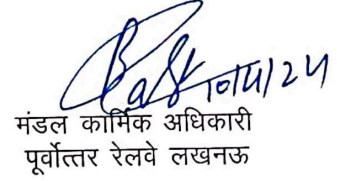 10/4/24
मंडल कार्मिक अधिकारी
पूर्वोत्तर रेलवे लखनऊ